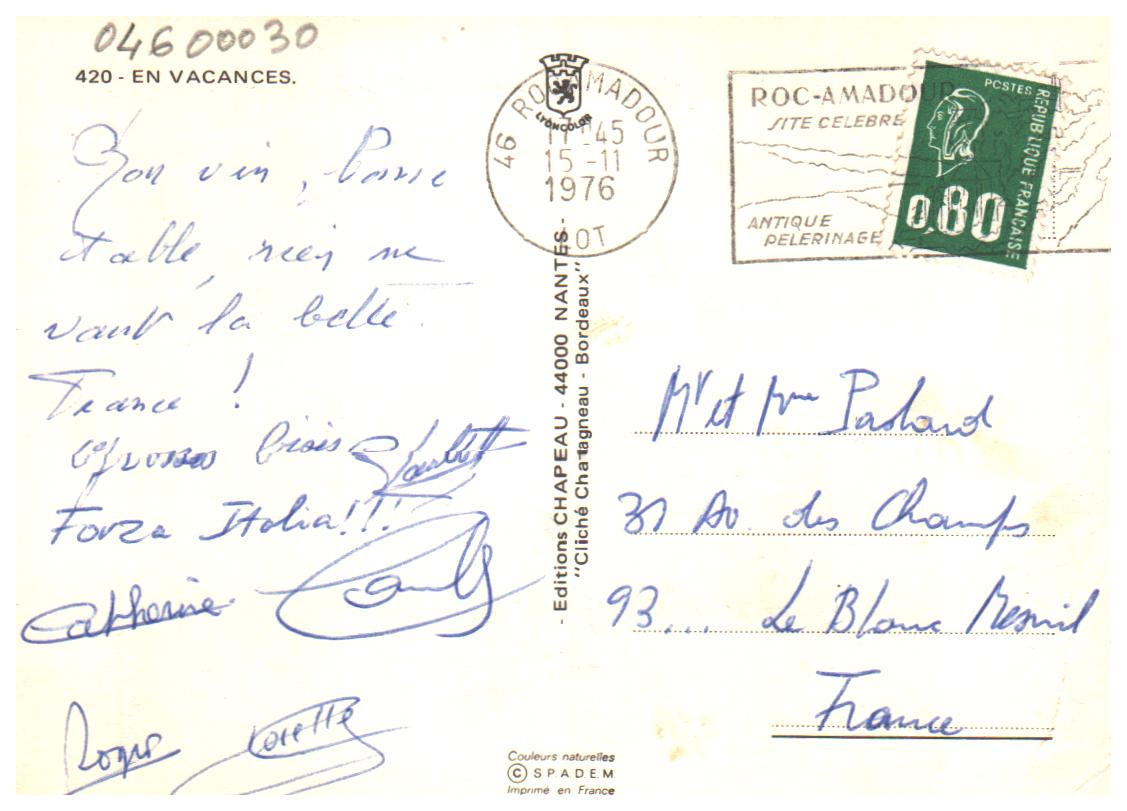 04600030
420 - EN VACANCES.
Bon vin, bonne
table, rien ne
vaut la belle
France !
Grosses bises
Forza Italia!!!
Catherine
Roger Colette
LYONCOLOR
46 ROC AMADOUR
17H45
15 -11
1976
LOT
ROC-AMADOUR
SITE CELEBRE
ANTIQUE
PELERINAGE
POSTES
REPUBLIQUE FRANCAISE
0,80
- Editions CHAPEAU - 44000 NANTES -
"Cliché Chatagneau - Bordeaux"
Mr et Mme Paslard
31 Av. des Champs
93... Le Blanc Mesnil
France
Couleurs naturelles
© S.P.A.D.E.M
Imprimé en France